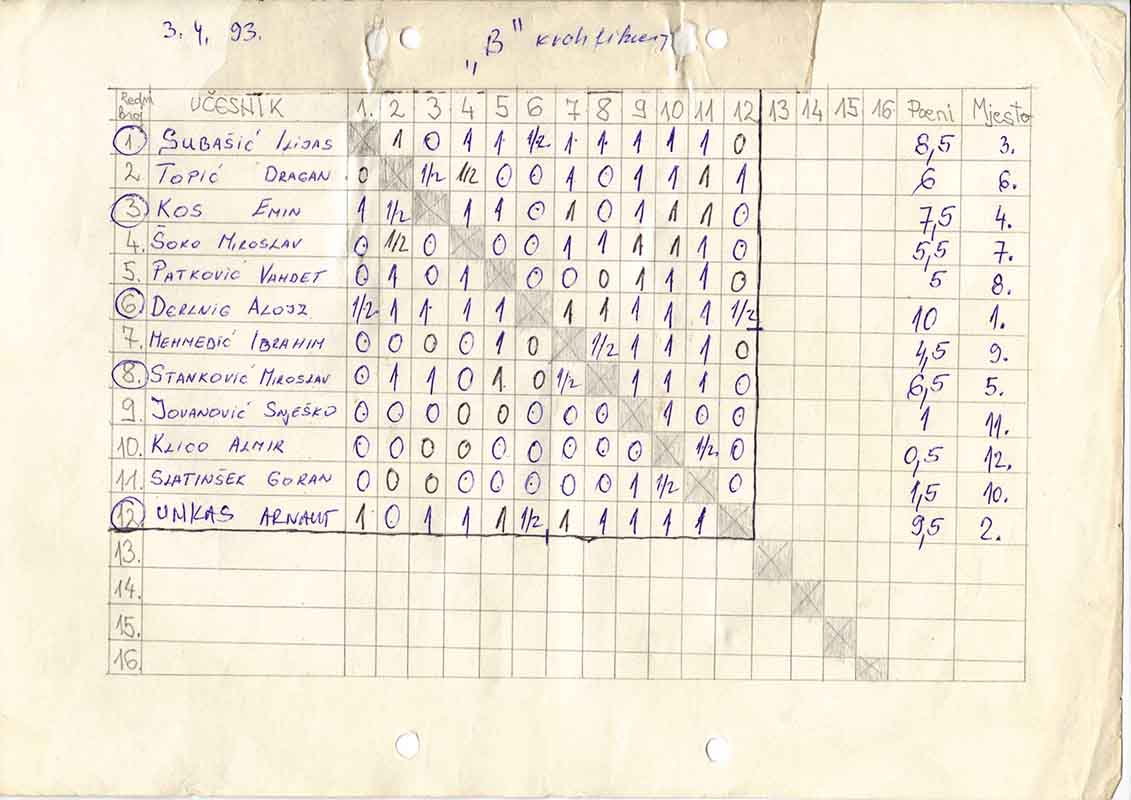 3. 4. 93.
„B“
Redni broj UČESNIK 1. 2 3 4 5 6 7 8 9 10 11 12 13 14 15 16 Poeni Mjesto
1. SUBAŠIĆ ILIJAS 1 0 1 1 1/2 1 1 1 1 1 0 8,5 3.
2. TOPIĆ DRAGAN 0 1/2 1/2 0 0 1 0 1 1 1 1 6 6.
3. KOS EMIN 1 1/2 1 1 0 1 0 1 1 1 0 7,5 4.
4. ŠOKO MIROSLAV 0 1/2 0 0 0 1 1 1 1 1 0 5,5 7.
5. PATKOVIĆ VAHDET 0 1 0 1 0 0 0 1 1 1 0 5 8.
6. DERLNIG ALOJZ 1/2 1 1 1 1 1 1 1 1 1 1/2 10 1.
7. MEHMEDIĆ IBRAHIM 0 0 0 0 1 0 1/2 1 1 1 0 4,5 9.
8. STANKOVIĆ MIROSLAV 0 1 1 0 1 0 1/2 1 1 1 0 6,5 5.
9. JOVANOVIĆ SNJEŠKO 0 0 0 0 0 0 0 0 1 0 0 1 11.
10. KLICO ALMIR 0 0 0 0 0 0 0 0 0 1/2 0 0,5 12.
11. SLATINŠEK GORAN 0 0 0 0 0 0 0 0 1 1/2 0 1,5 10.
12. UNKAS ARNAUT 1 0 1 1 1 1/2 1 1 1 1 1 9,5 2.
13.
14.
15.
16.